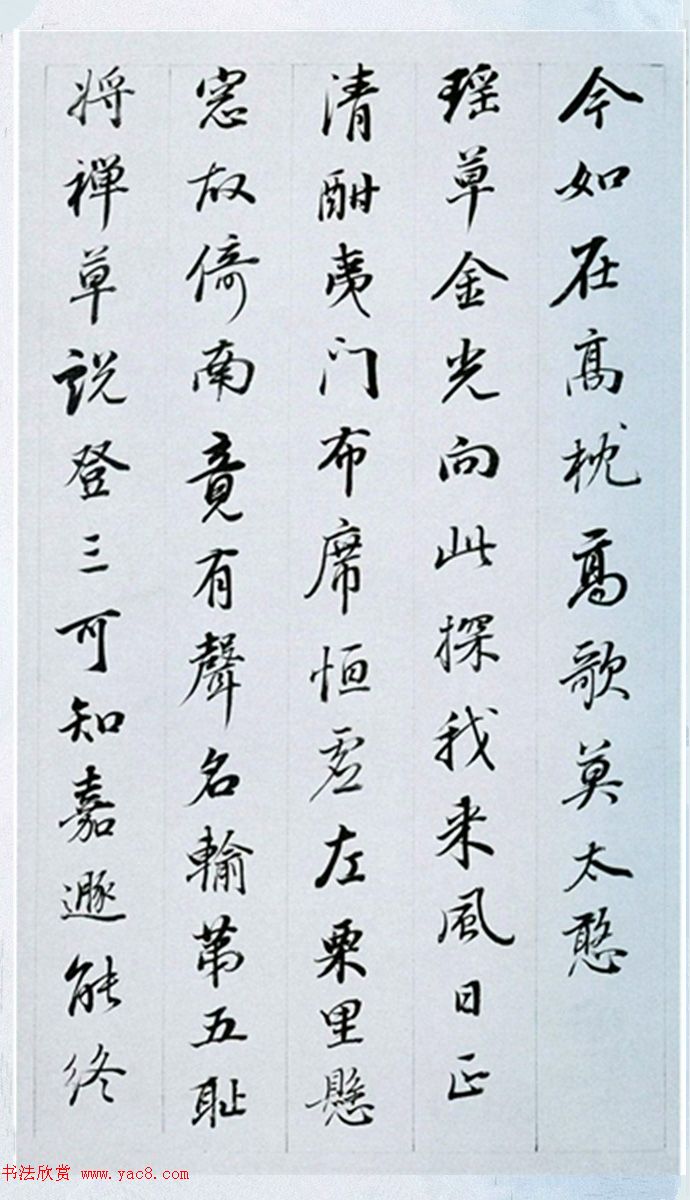 今如在高枕高歌莫太憨
瑶草金光向此探我来風日正
清酣夷门布席恒虚左栗里懸
窓故倚南竟有聲名輸苐五耻
将禅草説登三可知嘉遯能终
书法欣赏 www.yac8.com